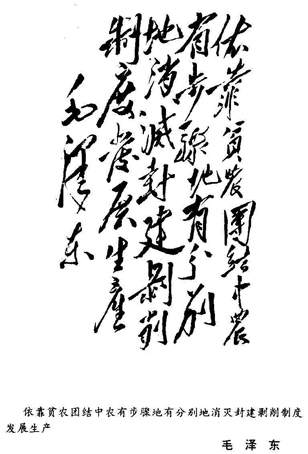 依靠貧農團結中農
有步驟地有分別
地消滅封建剥削
制度發展生產
毛澤东
依靠贫农团结中农有步骤地有分别地消灭封建剥削制度
发展生产
毛泽东